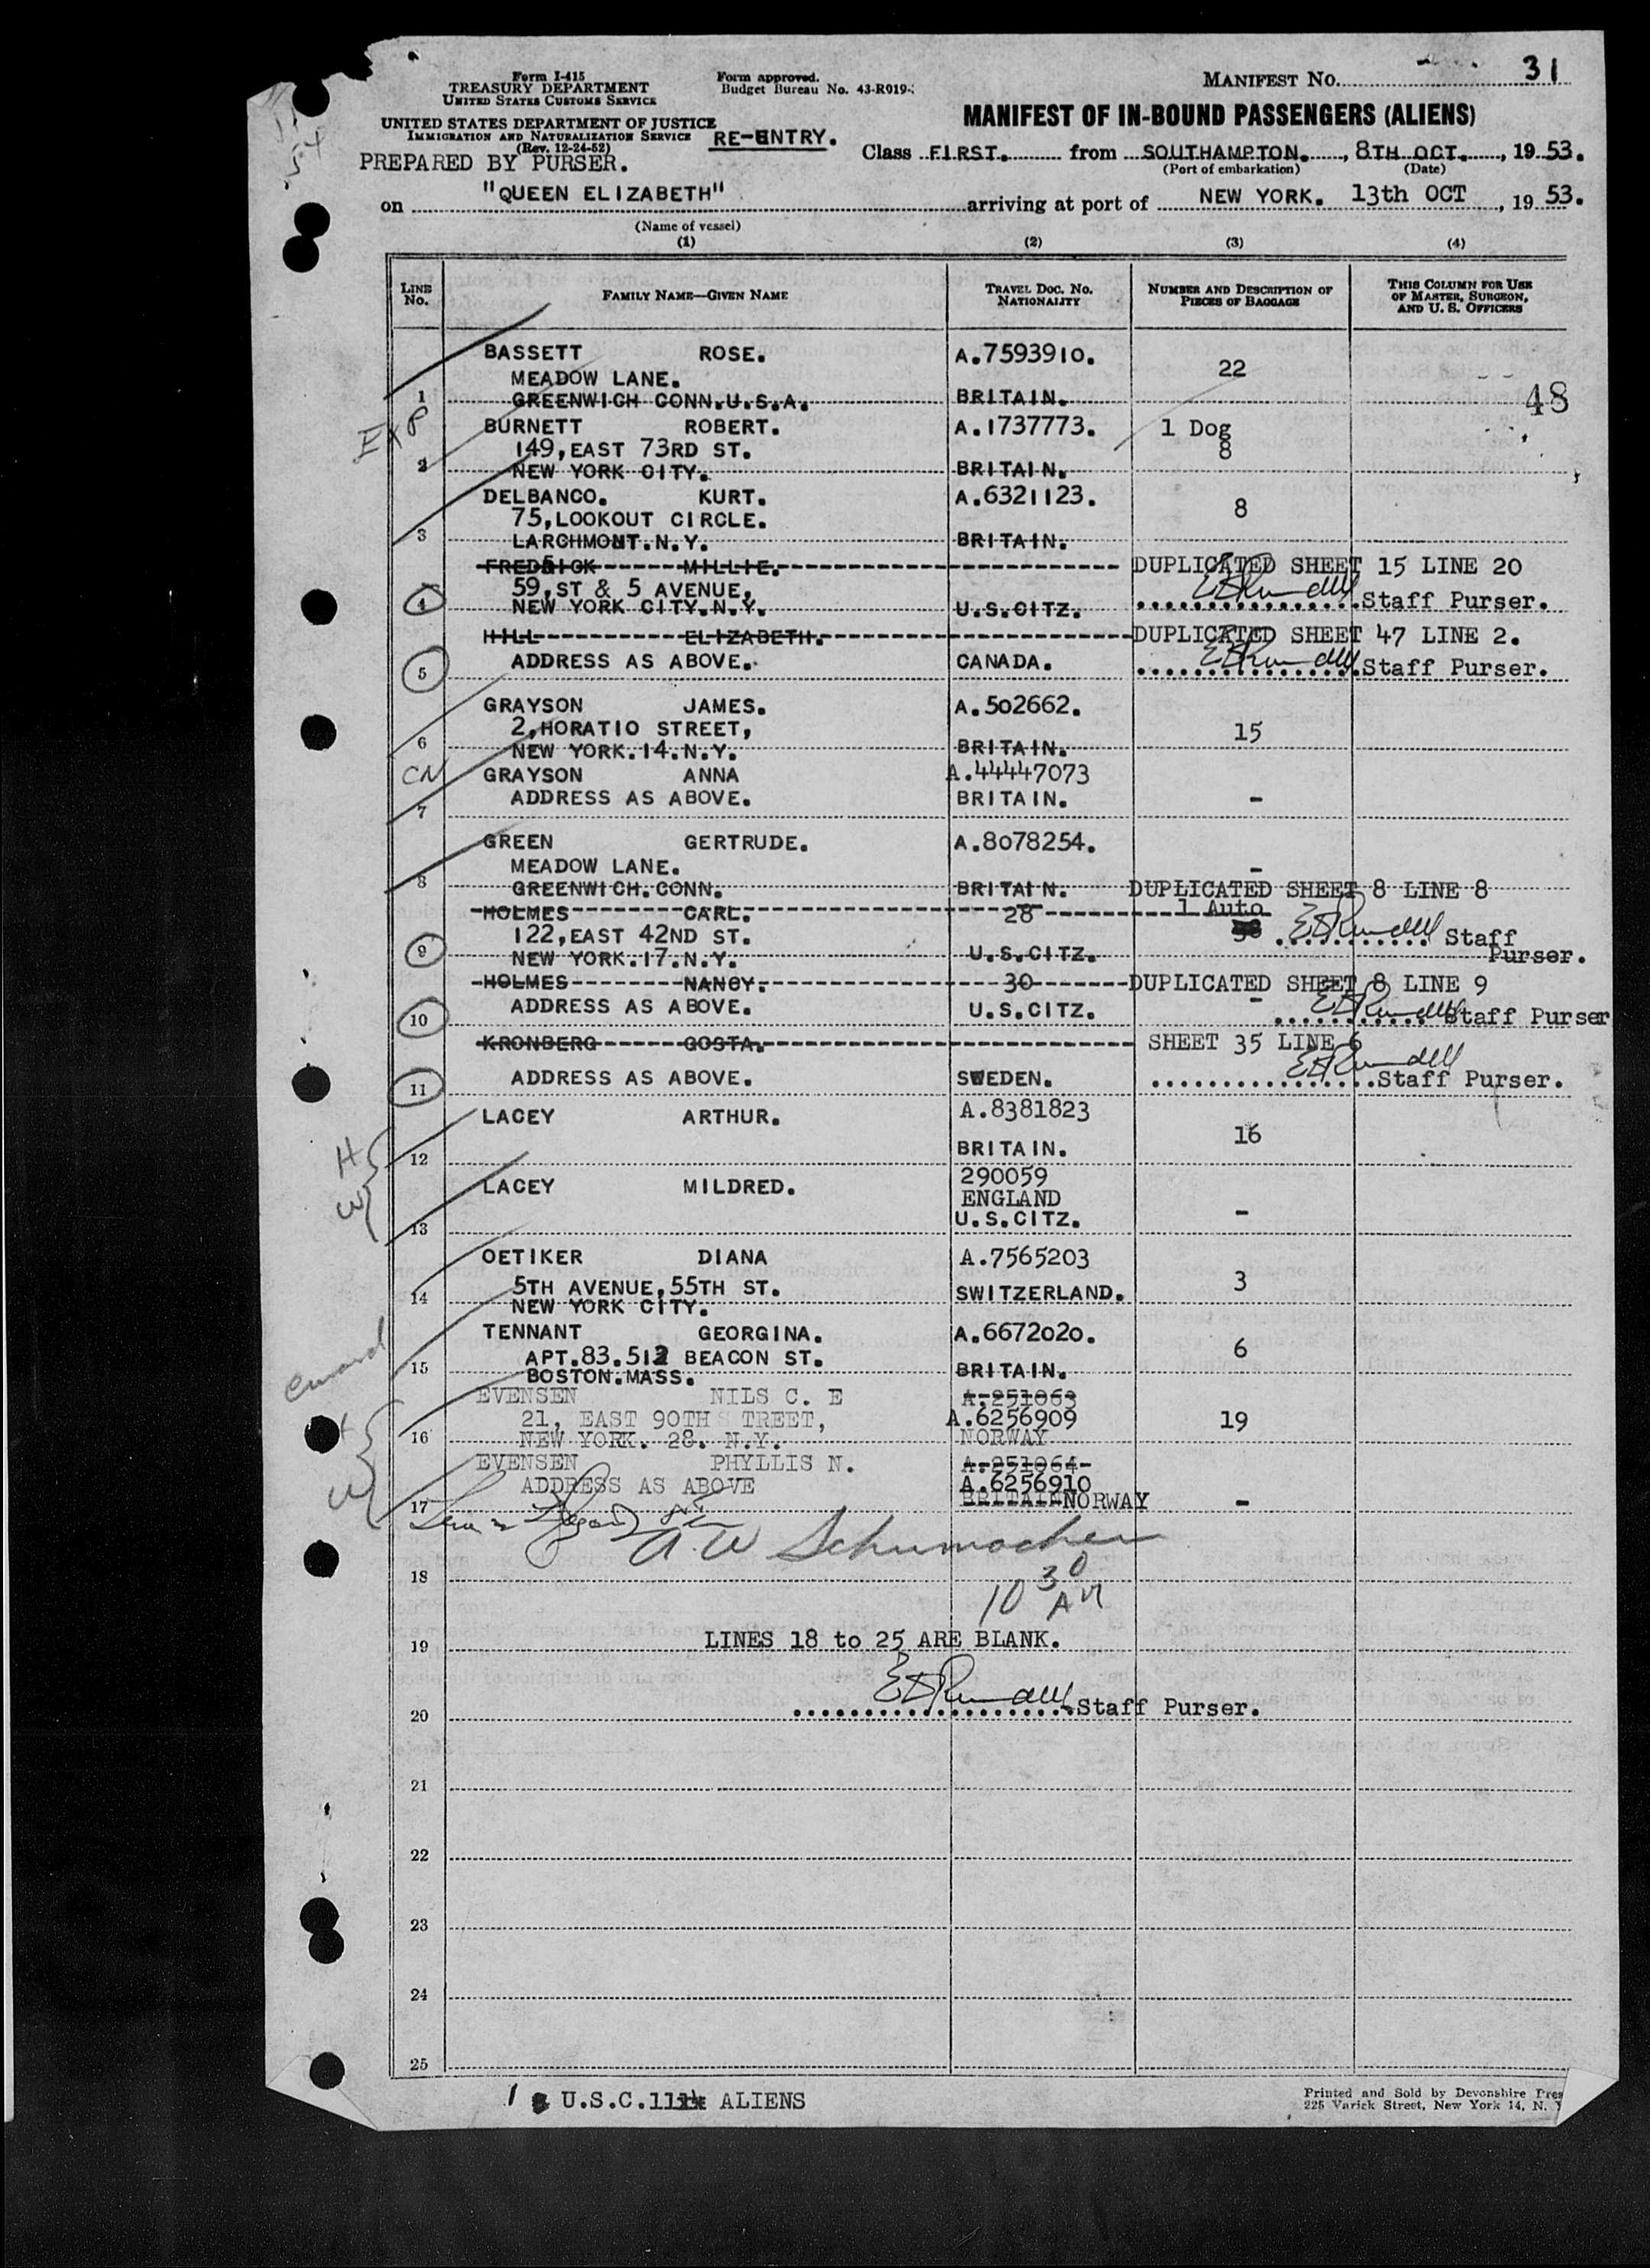 Form I-415
TREASURY DEPARTMENT
UNITED STATES CUSTOMS SERVICE
UNITED STATES DEPARTMENT OF JUSTICE
IMMIGRATION AND NATURALIZATION SERVICE
(Rev. 12-24-52)
PREPARED BY PURSER.
Form approved.
Budget Bureau No. 43-R019-
RE-ENTRY.
MANIFEST NO. 31
MANIFEST OF IN-BOUND PASSENGERS (ALIENS)
Class FIRST. from SOUTHAMPTON., 8TH OCT., 19 53.
(Port of embarkation) (Date)
on "QUEEN ELIZABETH" arriving at port of NEW YORK. 13th OCT, 19 53.
(Name of vessel)
(1) (2) (3) (4)
LINE No. FAMILY NAME—GIVEN NAME TRAVEL DOC. NO. NATIONALITY NUMBER AND DESCRIPTION OF PIECES OF BAGGAGE THIS COLUMN FOR USE OF MASTER, SURGEON, AND U. S. OFFICERS
BASSETT ROSE. A.7593910.
MEADOW LANE. 22
1 GREENWICH CONN.U.S.A. BRITAIN. 48
EXP BURNETT ROBERT. A.1737773. 1 Dog
149,EAST 73RD ST. 8
2 NEW YORK CITY. BRITAIN.
DELBANCO. KURT. A.6321123.
75,LOOKOUT CIRCLE. 8
3 LARCHMONT.N.Y. BRITAIN.
FREDRICK MILLIE. DUPLICATED SHEET 15 LINE 20
59,ST & 5 AVENUE,
4 NEW YORK CITY.N.Y. U.S.CITZ. Staff Purser.
HILL ELIZABETH. DUPLICATED SHEET 47 LINE 2.
5 ADDRESS AS ABOVE. CANADA. Staff Purser.
GRAYSON JAMES. A.502662.
2,HORATIO STREET, 15
6 NEW YORK.14.N.Y. BRITAIN.
CN GRAYSON ANNA A.44447073
7 ADDRESS AS ABOVE. BRITAIN. -
GREEN GERTRUDE. A.8078254.
MEADOW LANE. -
8 GREENWICH.CONN. BRITAIN. DUPLICATED SHEET 8 LINE 8
HOLMES CARL. 28 1 Auto
122,EAST 42ND ST. Staff
9 NEW YORK.17.N.Y. U.S.CITZ. Purser.
HOLMES NANCY. 30 DUPLICATED SHEET 8 LINE 9
10 ADDRESS AS ABOVE. U.S.CITZ. - Staff Purser
KRONBERG GOSTA. SHEET 35 LINE 6
11 ADDRESS AS ABOVE. SWEDEN. Staff Purser.
LACEY ARTHUR. A.8381823
H 12 BRITAIN. 16
W LACEY MILDRED. 290059
ENGLAND
13 U.S.CITZ. -
OETIKER DIANA A.7565203
14 5TH AVENUE,55TH ST. SWITZERLAND. 3
NEW YORK CITY.
TENNANT GEORGINA. A.6672020.
15 APT.83.512 BEACON ST. BRITAIN. 6
BOSTON.MASS.
EVENSEN NILS C. E A.251063
21, EAST 90TH STREET, A.6256909 19
16 NEW YORK. 28. N.Y. NORWAY
EVENSEN PHYLLIS N. A.251064
ADDRESS AS ABOVE A.6256910
W 17 BRITAIN NORWAY -
A. W Schumacher
18 10 30 AM
19 LINES 18 to 25 ARE BLANK.
20 Staff Purser.
21
22
23
24
25
1 U.S.C. 11 ALIENS
Printed and Sold by Devonshire Pres
225 Varick Street, New York 14, N. Y